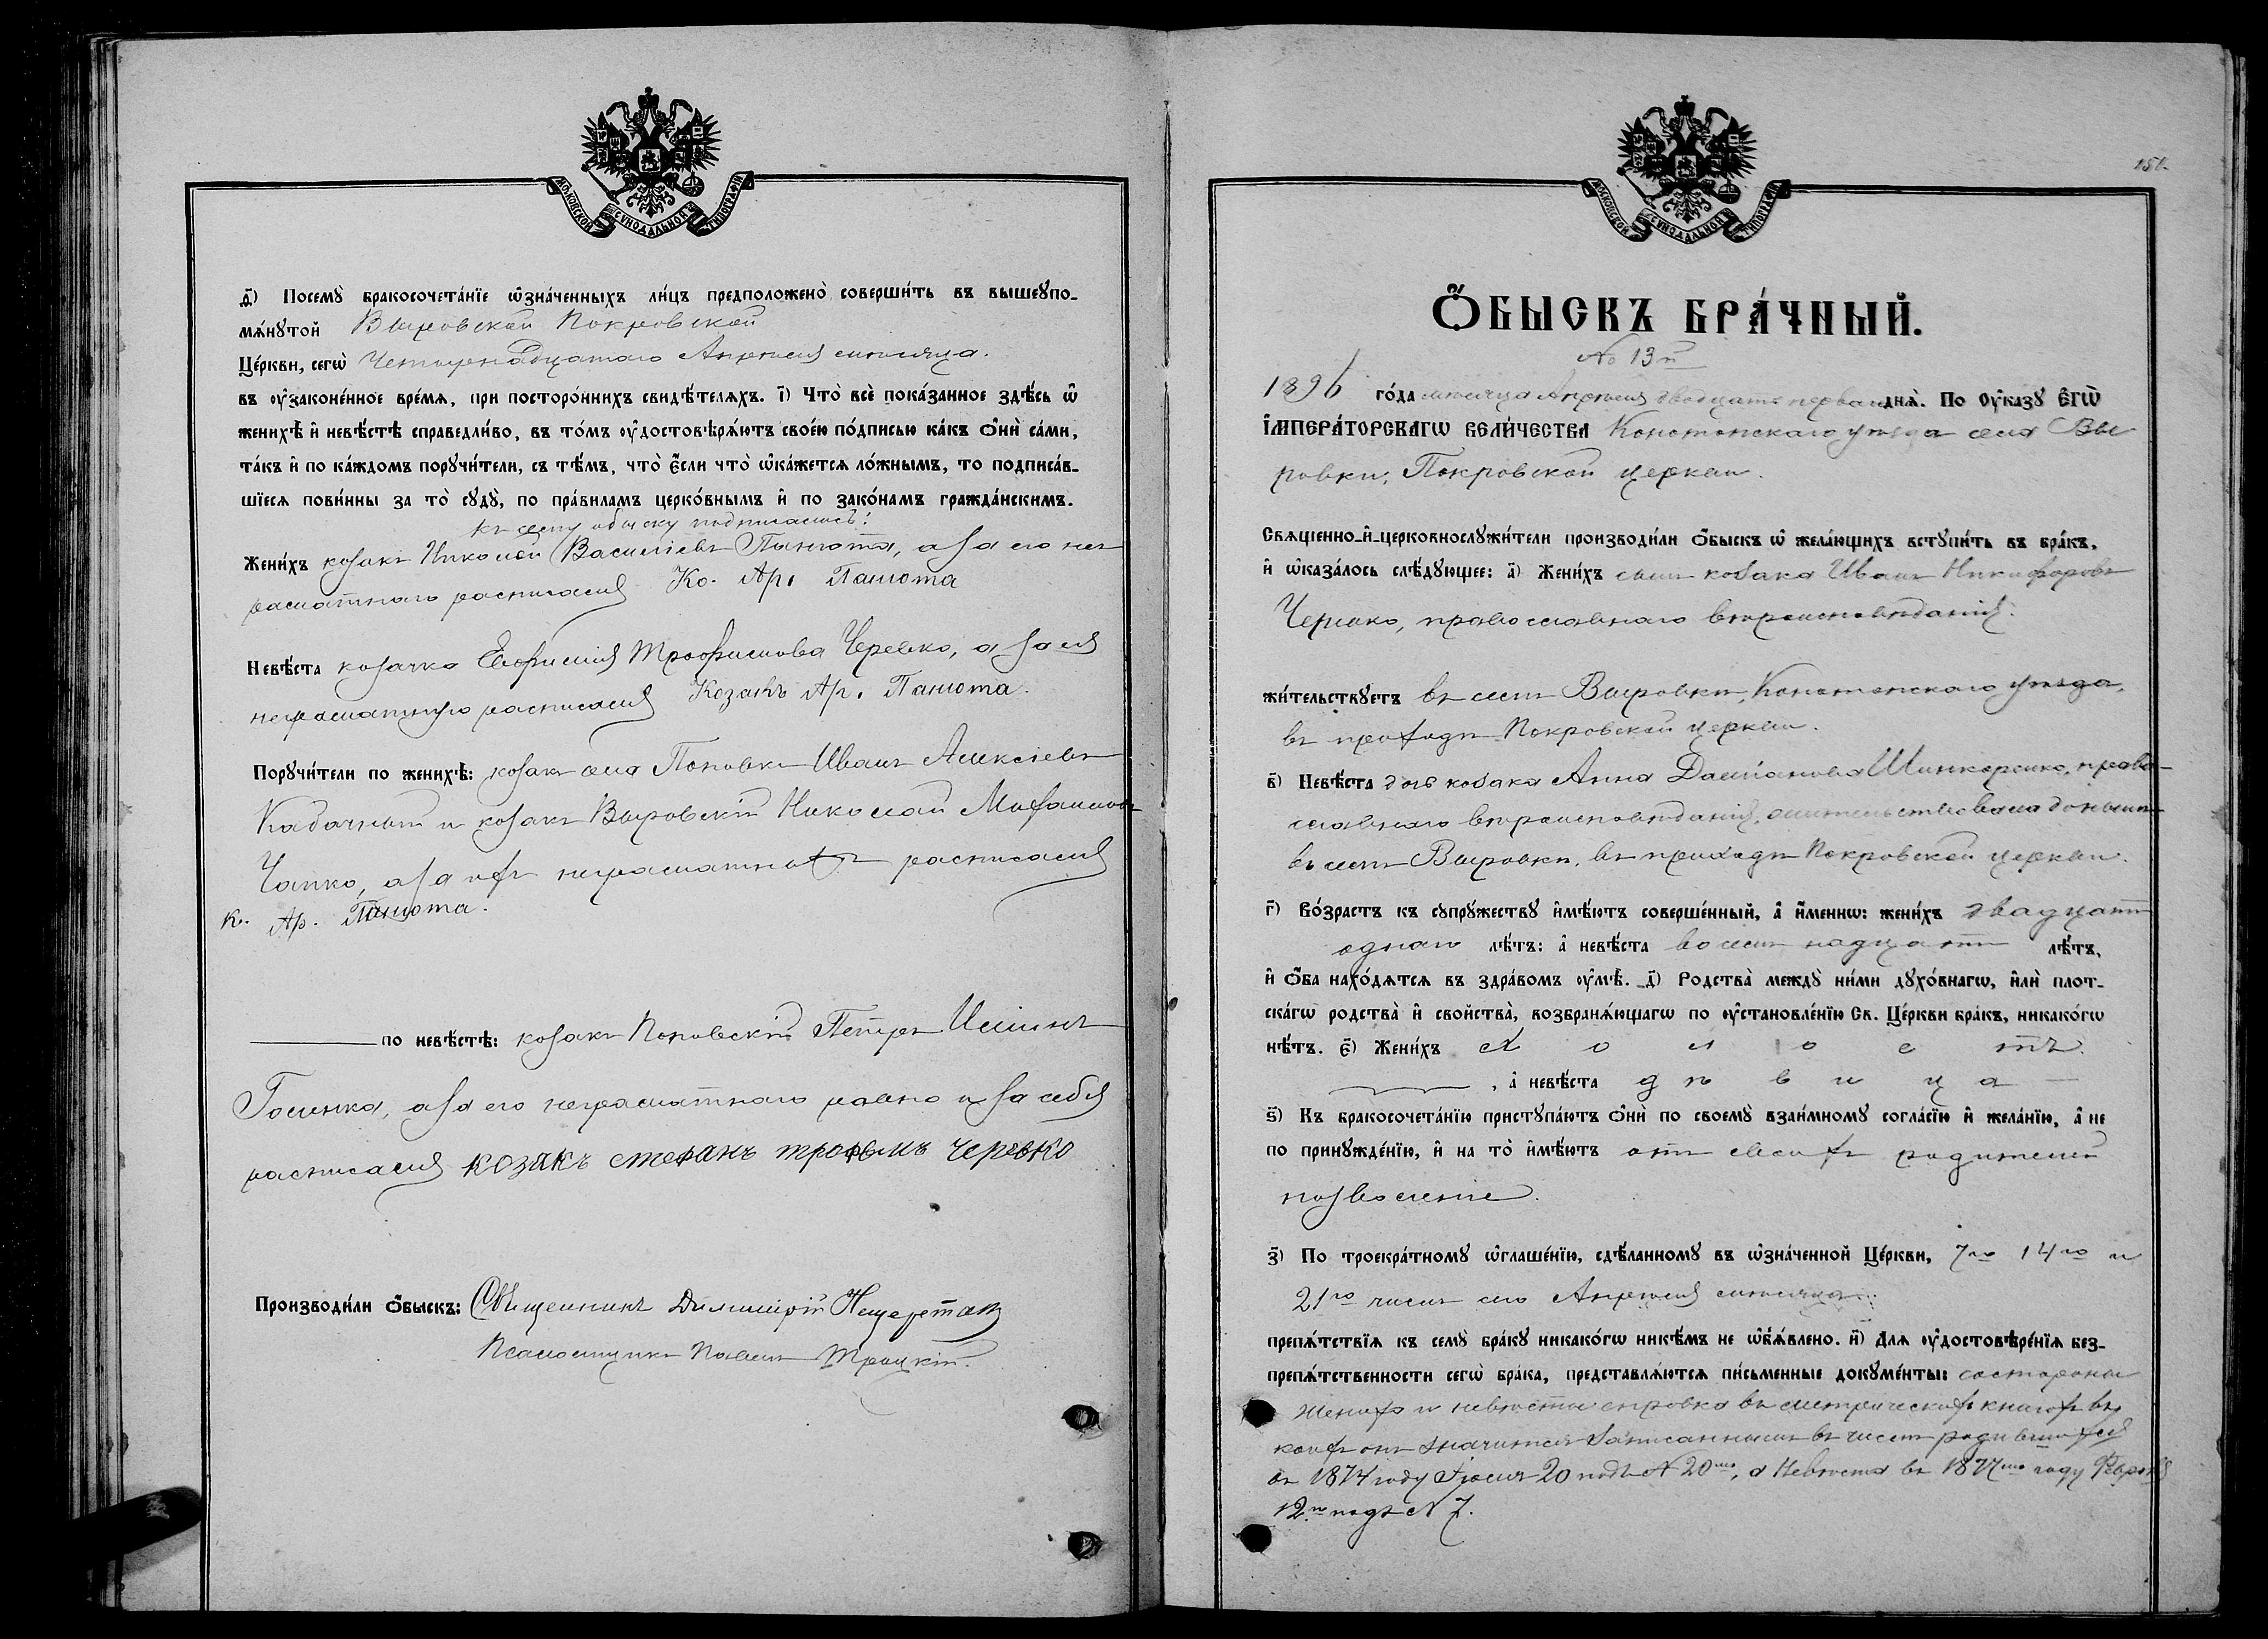 МОСКОВСКОЙ СѴНОДАЛЬНОЙ ТИПОГРАФІИ
д҃) Посемꙋ̀ бракосочета́нїе ѡ҆зна́ченныхъ ли́цъ предположено̀ соверши́ть въ вышеꙋпо-
мѧ́нꙋтой Выровской Покровской
Це́ркви, сегѡ̀ Четырнадцатого Апрѣля мѣсяца.
въ ᲂу҆законе́нное вре́мѧ, при посторо́ннихъ свидѣ́телѧхъ. і҃) Что̀ всѐ пока́занное здѣ́сь ѡ҆
женихѣ̀ и҆ невѣ́стѣ справедли́во, въ то́мъ ᲂу҆достовѣрѧ́ютъ свое́ю по́дписью ка́къ ѻ҆нѝ са́ми,
та́къ и҆ по ка́ждомъ порꙋчи́тели, съ тѣ́мъ, что̀ є҆́сли что̀ ѡ҆ка́жетсѧ ло́жнымъ, то подписа́в-
шїесѧ пови́нны за то̀ сꙋдꙋ̀, по пра́виламъ церко́внымъ и҆ по зако́намъ гражда́нскимъ.
къ сему обыску подписались:
Жени́хъ козакъ Николай Василіевъ Панюта, а за его не
грамотного росписался Ко. Ар. Панюта
Невѣ́ста козачка Евфимія Трофимова Черевко, а за ея
неграмотную росписался Козакъ Ар. Панюта.
Порꙋчи́тели по женихѣ̀: козакъ села Поповки Иванъ Алексіевъ
Кабачный и козакъ Выровскій Николай
Чапко, а за ихъ неграмотныхъ росписался
К. Ар. Панюта.
по невѣ́стѣ: козакъ Поповскій Петръ
а за его неграмотного равно и за себя
росписался козакъ стефанъ трофымъ черевко
Производи́ли ѻ҆́быскъ: Священникъ Димитрій Нещеретъ
Псаломщикъ Павелъ Троцкій.
МОСКОВСКОЙ СѴНОДАЛЬНОЙ ТИПОГРАФІИ
Ѻ҆́БЫСКЪ БРА́ЧНЫЙ.
№ 13й
1896 го́да мѣсяца Апрѣля двадцать перваго днѧ̀. По ᲂу҆ка́зꙋ Є҆ГѠ̀
І҆МПЕРА́ТОРСКАГѠ ВЕЛИ́ЧЕСТВА Конотопскаго уѣзда села Вы
ровки, Покровской церкви.
Свѧще́нно-и҆-церковнослꙋжи́тели производи́ли ѻ҆́быскъ ѡ҆ жела́ющихъ встꙋпи́ть въ бра́къ,
и҆ ѡ҆каза́лось слѣ́дꙋющее: а҃) Жени́хъ сынъ козака Иванъ Никифоровъ
православнаго вѣроисповѣданія.
жи́тельствꙋетъ въ селѣ Выровки, Конотопскаго уѣзда,
въ приходѣ Покровской церкви.
в҃) Невѣ́ста дочь козака Анна Даміанова Шинкаренко, право-
славнаго вѣроисповѣданія, жительствовала донынѣ
въ селѣ Выровки, въ приходѣ Покровской церкви.
г҃) Во́зрастъ къ сꙋпрꙋ́жествꙋ и҆мѣ́ютъ соверше́нный, а҆ и҆́меннѡ: жени́хъ двадцать
одного лѣ́тъ: а҆ невѣ́ста восемнадцать лѣ́тъ,
и҆ ѻ҆́ба нахо́дѧтсѧ въ здра́вомъ ᲂу҆мѣ̀. д҃) Родства̀ междꙋ̀ ни́ми дꙋхо́внагѡ, и҆лѝ плот-
ска́гѡ родства̀ и҆ свойства̀, возбранѧ́ющагѡ по ᲂу҆становле́нїю Св. Це́ркви бра́къ, никако́гѡ
нѣ́тъ. є҃) Жени́хъ холостъ.
, а҆ невѣ́ста дѣвица
ѕ҃) Къ бракосочета́нїю пристꙋпа́ютъ ѻ҆нѝ по своемꙋ̀ взаи́мномꙋ согла́сїю и҆ жела́нїю, а҆ не
по принꙋжде́нїю, и҆ на то̀ и҆мѣ́ютъ отъ своихъ родителей
позволеніе.
з҃) По троекра́тномꙋ ѡ҆глаше́нїю, сдѣ́ланномꙋ въ ѡ҆зна́ченной Це́ркви, 7го 14го и
21го чиселъ сего Апрѣля мѣсяца
препѧ́тствїѧ къ семꙋ̀ бра́кꙋ никако́гѡ никѣ́мъ не ѡ҆б̾ѧ́влено. и҃) Длѧ ᲂу҆достовѣре́нїѧ без-
препѧ́тственности сегѡ̀ бра́ка, представлѧ́ютсѧ пи́сьменные докꙋме́нты: состороны
жениха и невѣсты справка въ метрическихъ книгахъ въ
коихъ онъ значится записаннымъ въ числѣ родившихся
въ 1874 году Іюля 20 подъ № 20мъ, а Невѣста въ 1877мъ году Февраля
12го подъ № 7.